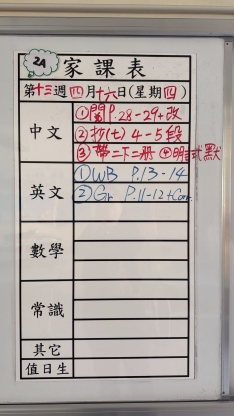 2A 家課表
第十三週四月十六日(星期四)
中文
①閱P.28-29+改
②抄(七) 4-5段
③帶二下二册 ④明試默
英文
①WB P.13-14
②Gr P.11-12+Corr.
數學
常識
其它
值日生